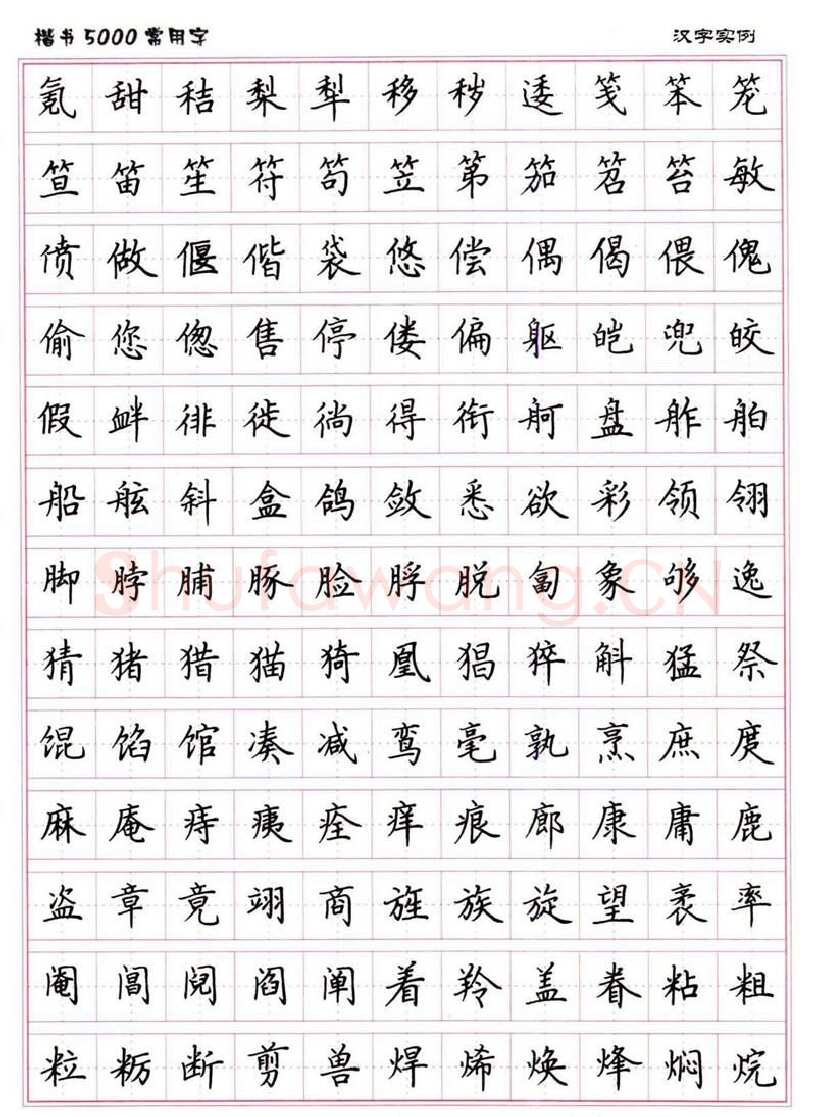 楷书5000常用字 汉字实例
氪甜秸梨犁移秽逶笺笨笼
笪笛笙符笱笠第笳笤笞敏
偾做偃偕袋悠偿偶偈偎傀
偷您偬售停偻偏躯皑兜皎
假衅徘徙徜得衔舸盘舴舶
船舷斜盒鸽敛悉欲彩领翎
脚脖脯豚脸脬脱匐象够逸
猜猪猎猫猗凰猖猝斛猛祭
馄馅馆凑减鸾毫孰烹庶度
麻庵痔痍痊痒痕廊康庸鹿
盗章竟翊商旌族旋望袤率
阉阊阋阎阐着羚盖眷粘粗
粒粝断剪兽焊烯焕烽焖烷
Shufawang.CN